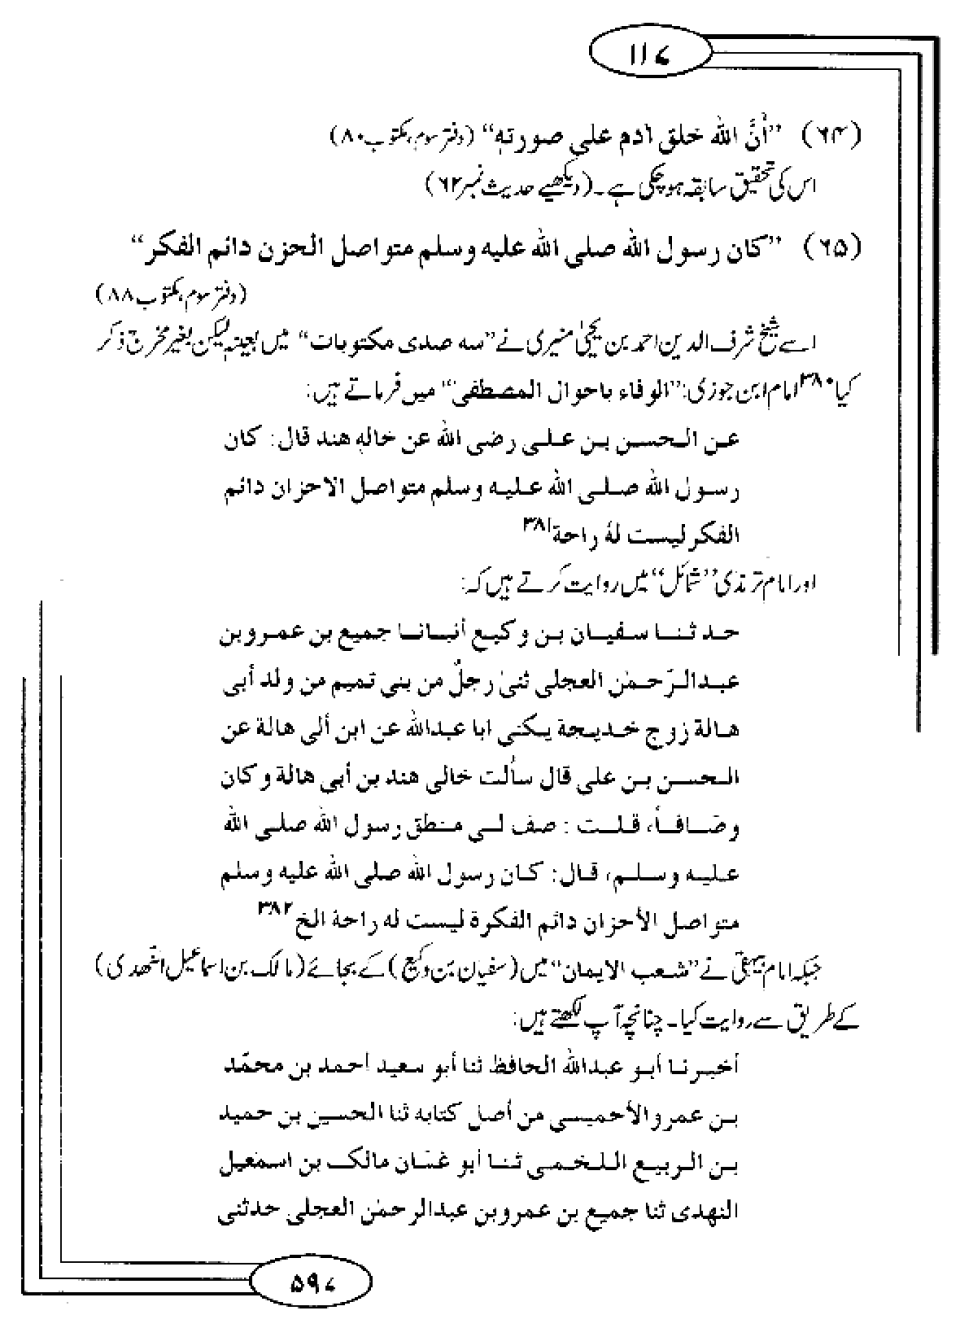 ۱۱۷
(۶۴) ”أنَّ الله خلق آدم علی صورتہٖ“ (دفتر سوم، مکتوب ۸۰)
اس کی تحقیق سابقہ ہو چکی ہے۔ (دیکھیے حدیث نمبر ۶۲)
(۶۵) ”کان رسول الله صلی الله علیه وسلم متواصل الحزن دائم الفکر“
(دفتر سوم، مکتوب ۸۸)
اسے شیخ شرف الدین احمد بن یحیٰ منیری نے ”سه صدی مکتوبات“ میں بعینہٖ لیکن بغیر مخرج ذکر
کیا ۳۸۰ امام ابن جوزی: ”الوفاء باحوال المصطفی“ میں فرماتے ہیں:
عن الحسن بن علی رضی الله عن خالهٖ هند قال: کان
رسول الله صلی الله علیه وسلم متواصل الاحزان دائم
الفکر لیست لهٗ راحة ۳۸۱
اور امام ترمذی ”شمائل“ میں روایت کرتے ہیں کہ:
حدثنا سفیان بن وکیع أنبانا جمیع بن عمرو بن
عبدالرّحمٰن العجلی ثنیٰ رجلٌ من بنی تمیم من ولد أبی
هالة زوج خدیجة یکنی ابا عبدالله عن ابن ألی هالة عن
الحسن بن علی قال سألت خالی هند بن أبی هالة وکان
وصّافاً، قلت: صف لی منطق رسول الله صلی الله
علیه وسلم، قال: کان رسول الله صلی الله علیه وسلم
متواصل الأحزان دائم الفکرة لیست له راحة الخ ۳۸۲
جبکہ امام بیہقی نے ”شعب الایمان“ میں (سفیان بن وکیع) کے بجائے (مالک بن اسماعیل النھدی)
کے طریق سے روایت کیا۔ چنانچہ آپ لکھتے ہیں:
أخبرنا أبو عبدالله الحافظ ثنا أبو سعید احمد بن محمّد
بن عمرو الأحمیسی من أصل کتابه ثنا الحسین بن حمید
بن الربیع اللخمی ثنا أبو غسّان مالک بن اسمٰعیل
النهدی ثنا جمیع بن عمرو بن عبدالرحمٰن العجلی حدثنی
۵۹۷